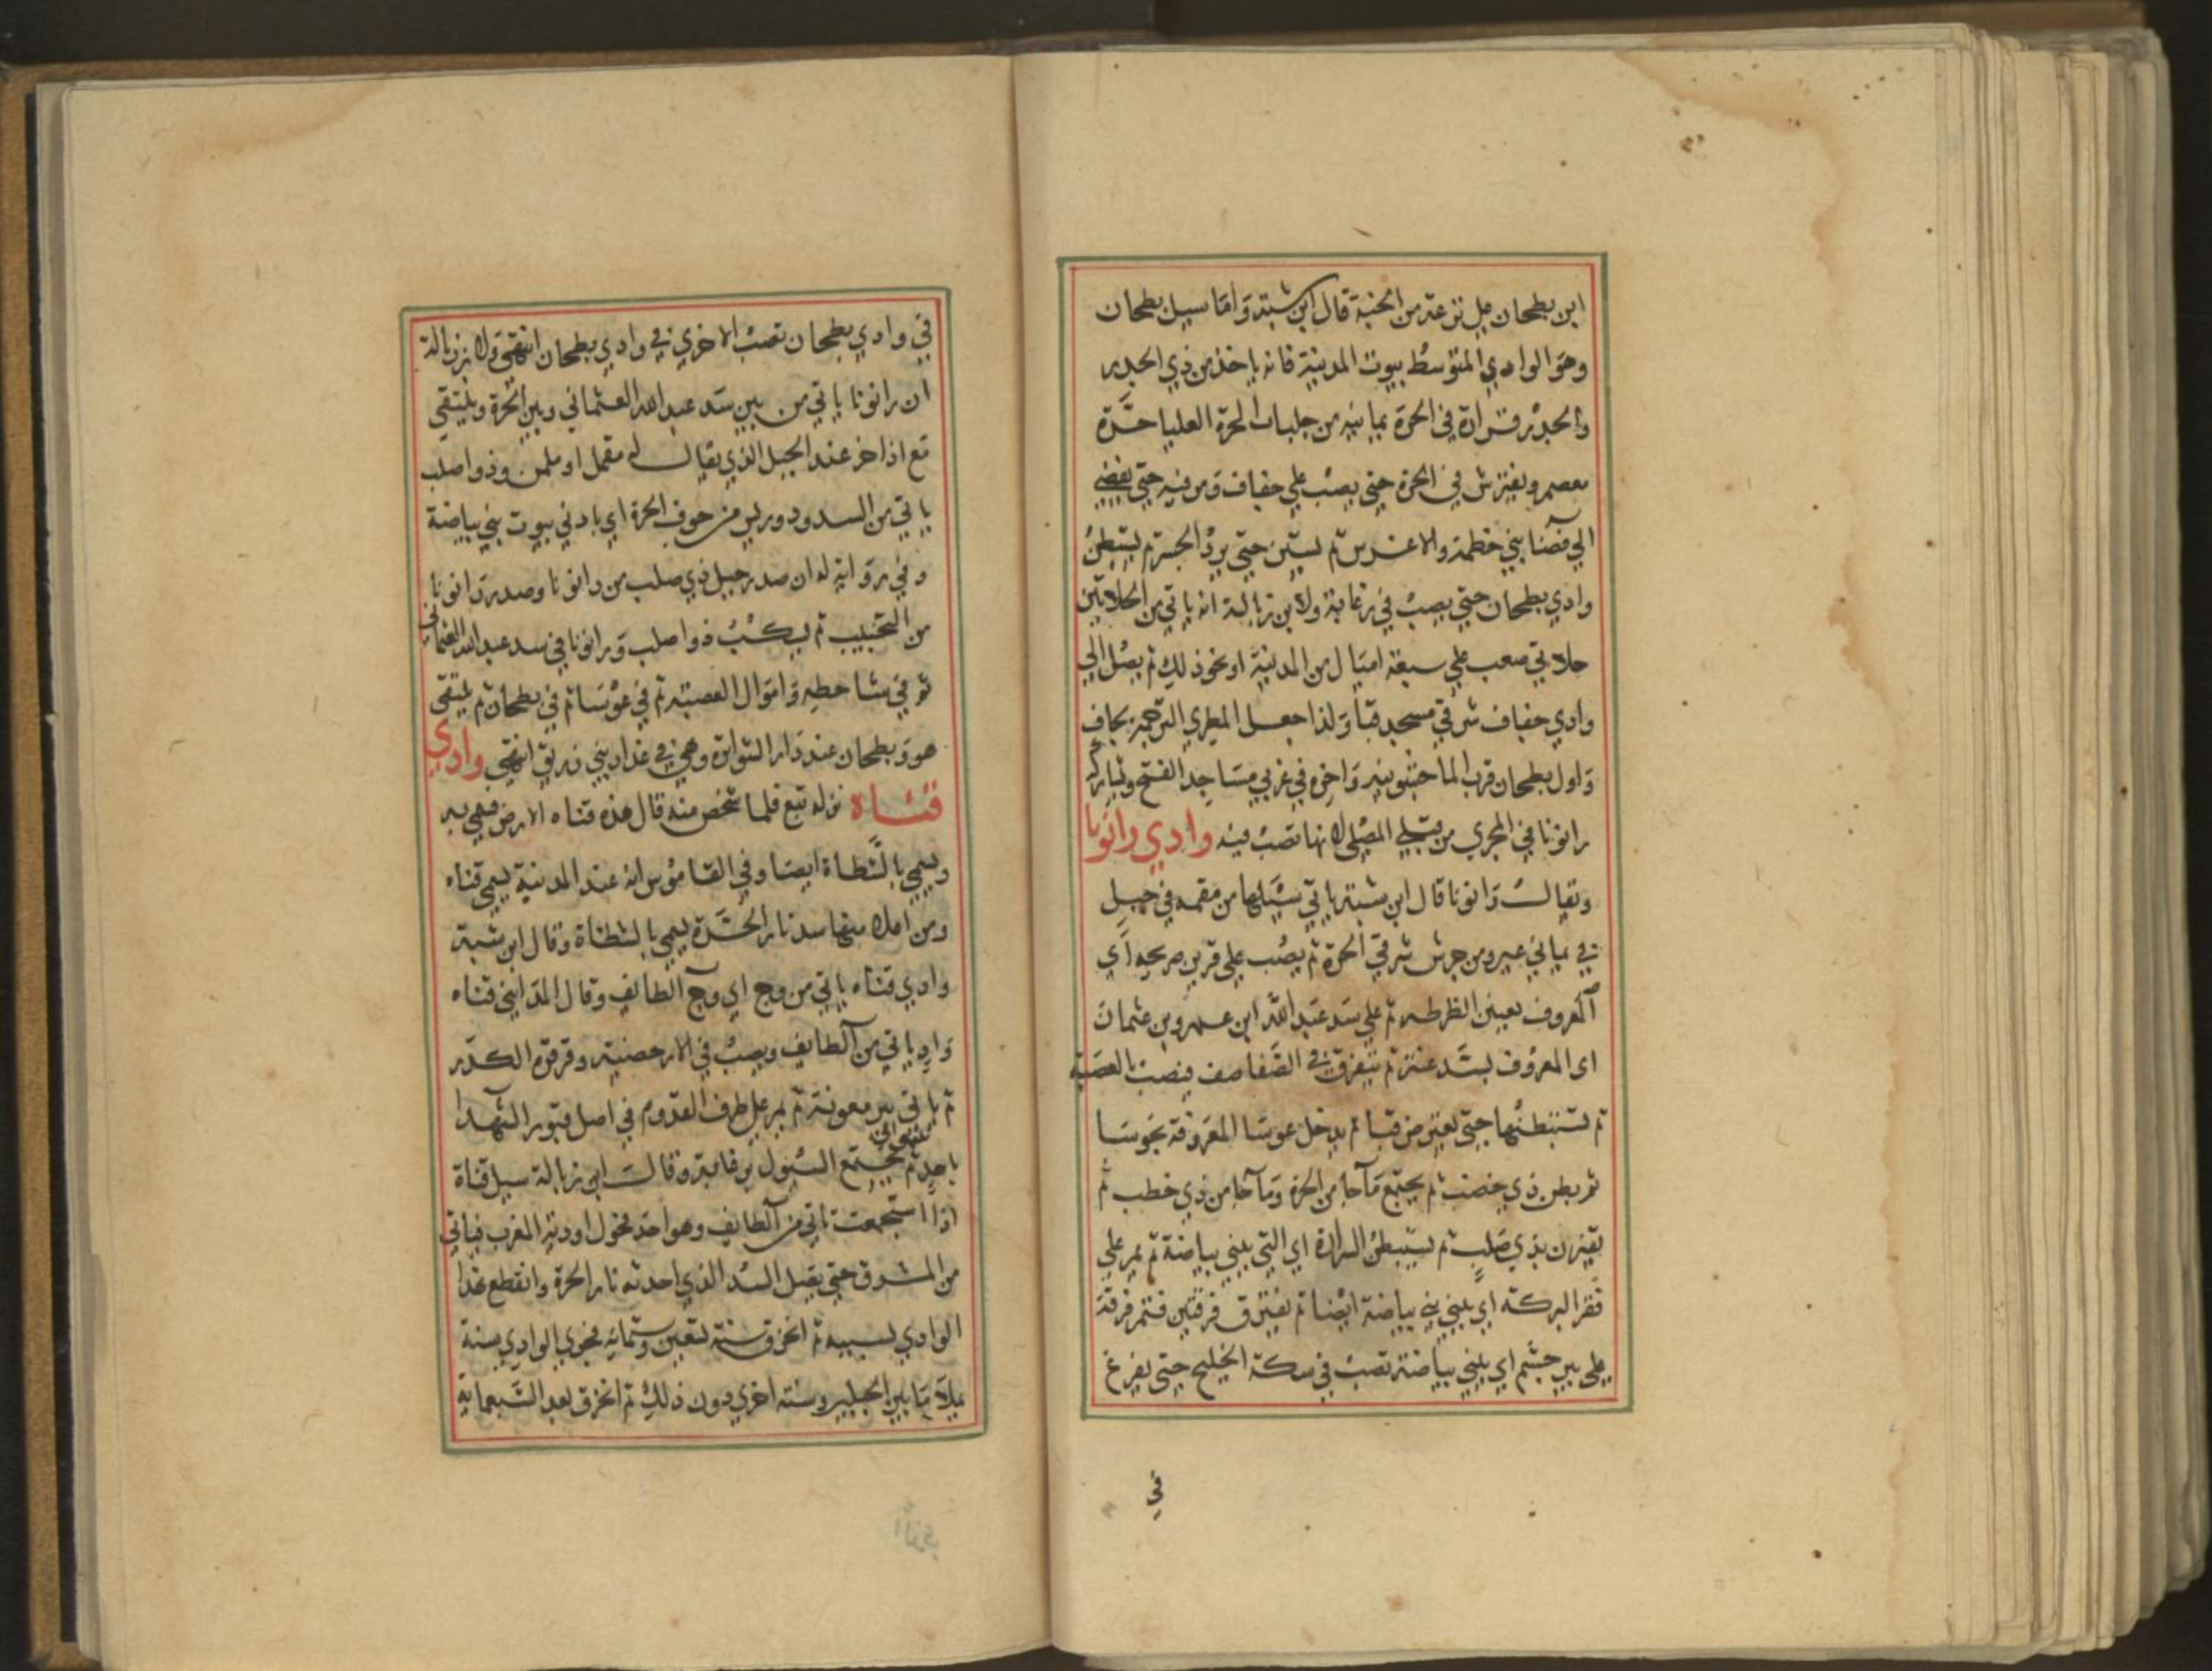 ابن بطحان علي ترعة من الجنة قال ابن شبة واما سيل بطحان
وهو الوادي المتوسط بيوت المدينة فانه ياخذ من ذي الجدر
والجدر قرارة في الحرة يمانية من جلبات الحرة العليا حرة
معصم ويفترش في الحرة حتى يصب علي جفاف ومن فيه حتى يفضي
الي فضا بني خطمة والاغرس ثم يستن حتى يرد الجسر ثم يستبطن
وادي بطحان حتى يصب في زغابة ولابن زبالة انه ياتي من الحلايتين
حلايتي صعب علي سبعة اميال من المدينة او نحو ذلك ثم يصل الي
وادي جفاف شرقي مسجد قبا ولذا جعل المطري الترجمة بجاف
واول بطحان قرب الماجشونيه واخره في غربي مساجد الفتح ويشاركه
رانونا في المجري من قبلي المصلى لانها تصب فيه وادي رانونا
ويقال رانونا قال ابن شبة ياتي سيلها من مقمه في جبل
في يماني عير ومن جرش شرقي الحرة ثم يصب علي قرين صريحه اي
المعروف بعين الظرطه ثم علي سد عبد الله ابن عمرو بن عثمان
اى المعروف بسد عنتر ثم يتفرق في الصفاصف فيصب العصبة
ثم تستبطنها حتى يعترض قبا ثم يدخل عوسا المعروفة بحوسا
ثم بطن ذي خصب ثم يجتمع ما جا من الحرة وما جا من ذي خطب ثم
يقترن بذي صلب ثم يستبطن السرارة اي التي ببني بياضة ثم يمر علي
قفر البركه اي ببني بياضة ايضا ثم يفترق فرقتين فتمر فرقة
علي بير جشم اي ببني بياضة تصب في سكة الخليج حتى يفرغ
في
في وادي بطحان وتصب الاخري في وادي بطحان انتهى ولابن زبالة
ان رانونا ياتي من بين سد عبد الله العثماني وبين الحرة ويلتقي
مع اذاخر عند الجبل الذي يقال له مقمل او ملمن وذو اصلب
ياتي من السدود وريس من جوف الحرة اي بادني بيوت بني بياضة
وفي رواية له ان صدر جبل ذي صلب من رانونا وصدر رانونا
من التجنيب ثم يسكب ذو اصلب ورانونا في سد عبد الله العثماني
ثم في شاحطه واموال العصبة ثم في عوسا ثم في بطحان ثم يلتقى
هو وبطحان عند دار الشواترة وهي في عداد بني زريق انتهى وادي
قناة نزله تبع فلما شخص منه قال هذه قناه الارض فسمي به
ويسمي بالشظاة ايضا وفي القاموس انه عند المدينة يسمي قناه
ومن اعلا منها سد نار الحرة يسمي بالشظاة وقال ابن شبة
وادي قناه ياتي من وج اي وج الطايف وقال المدايني قناه
واد ياتي من الطايف ويصب في الارحضية وقرقرة الكدر
ثم ياتي بير معونة ثم يمر علي طرف القدوم في اصل قبور الشهدا
باحد ثم يجتمع السيول بزغابة وقال ابن زبالة سيل قناة
اذا استجمعت تاتي من الطايف وهو احد فحول اودية المغرب فياتي
من المشرق حتى يصل السد الذي احدثه نار الحرة وانقطع هذا
الوادي بسببه ثم انخرق سنة تسعين وستمايه فجري الوادي سنة
يملا ما بين الجبلين وسنة اخري دون ذلك ثم انخرق بعد السبعماية